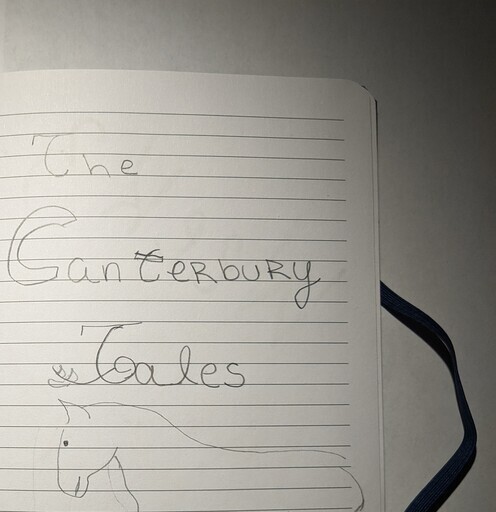 The
CanTERBURY
Tales